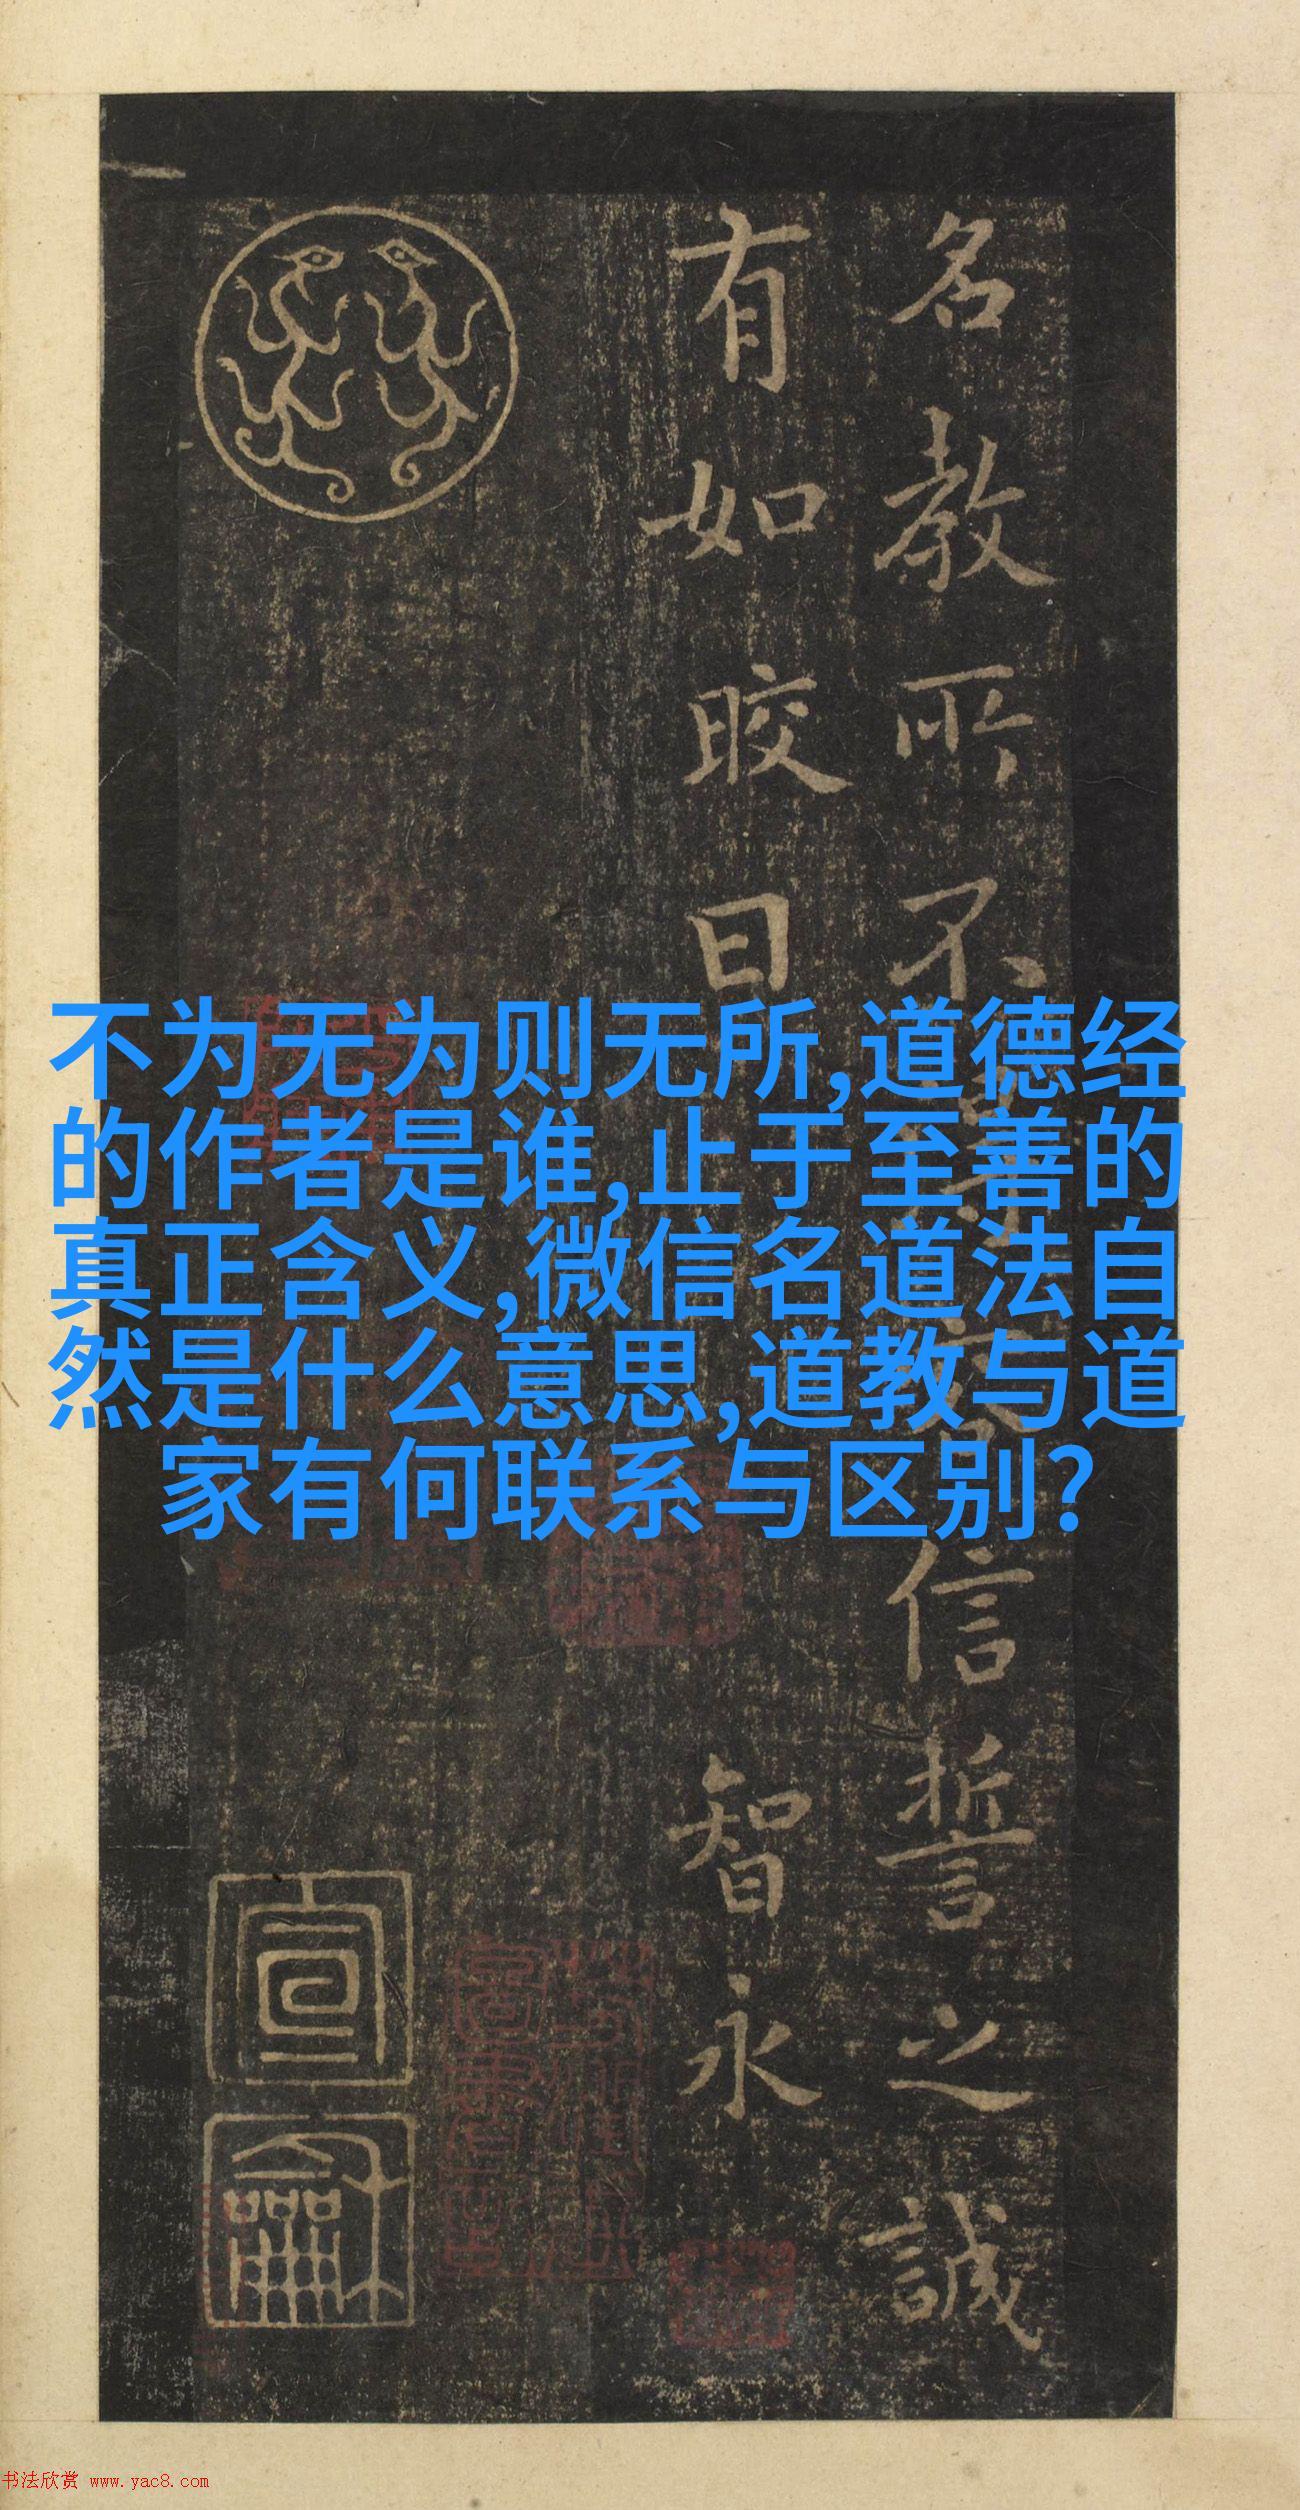 名教所不信誓之誠
有如晈日智永
宣
龢
不为无为则无所,道德经
的作者是谁,止于至善的
真正含义,微信名道法自
然是什么意思,道教与道
家有何联系与区别?
书法欣赏 www.yac8.com